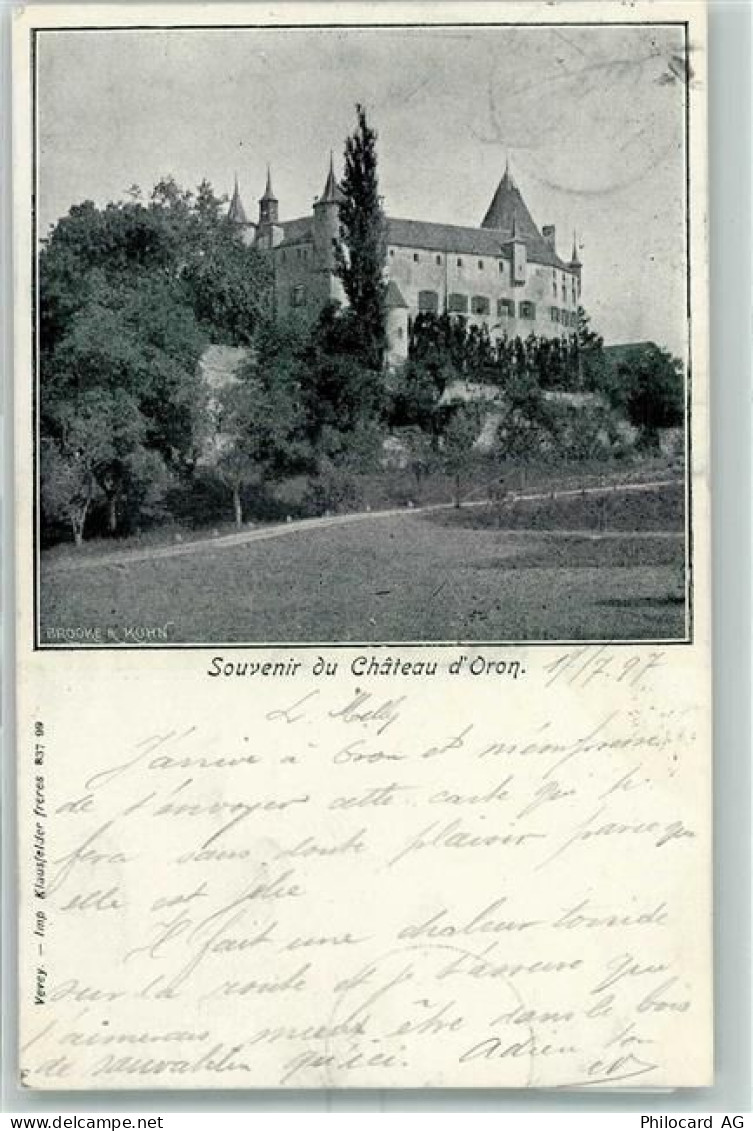 BROOKE & KUHN
Souvenir du Château d'Oron. 17/7.97
L. Milly
J'arrive à Oron et m'empresse
de t'envoyer cette carte qui te
fera sans doute plaisir parce que
elle est jolie
Il fait une chaleur torride
sur la route et je t'assure que
j'aimerais mieux être dans le bois
de sauvabelin qu'ici. Adieu ton
Vevey. — Imp Klausfelder frères 837 99
Philocard AG